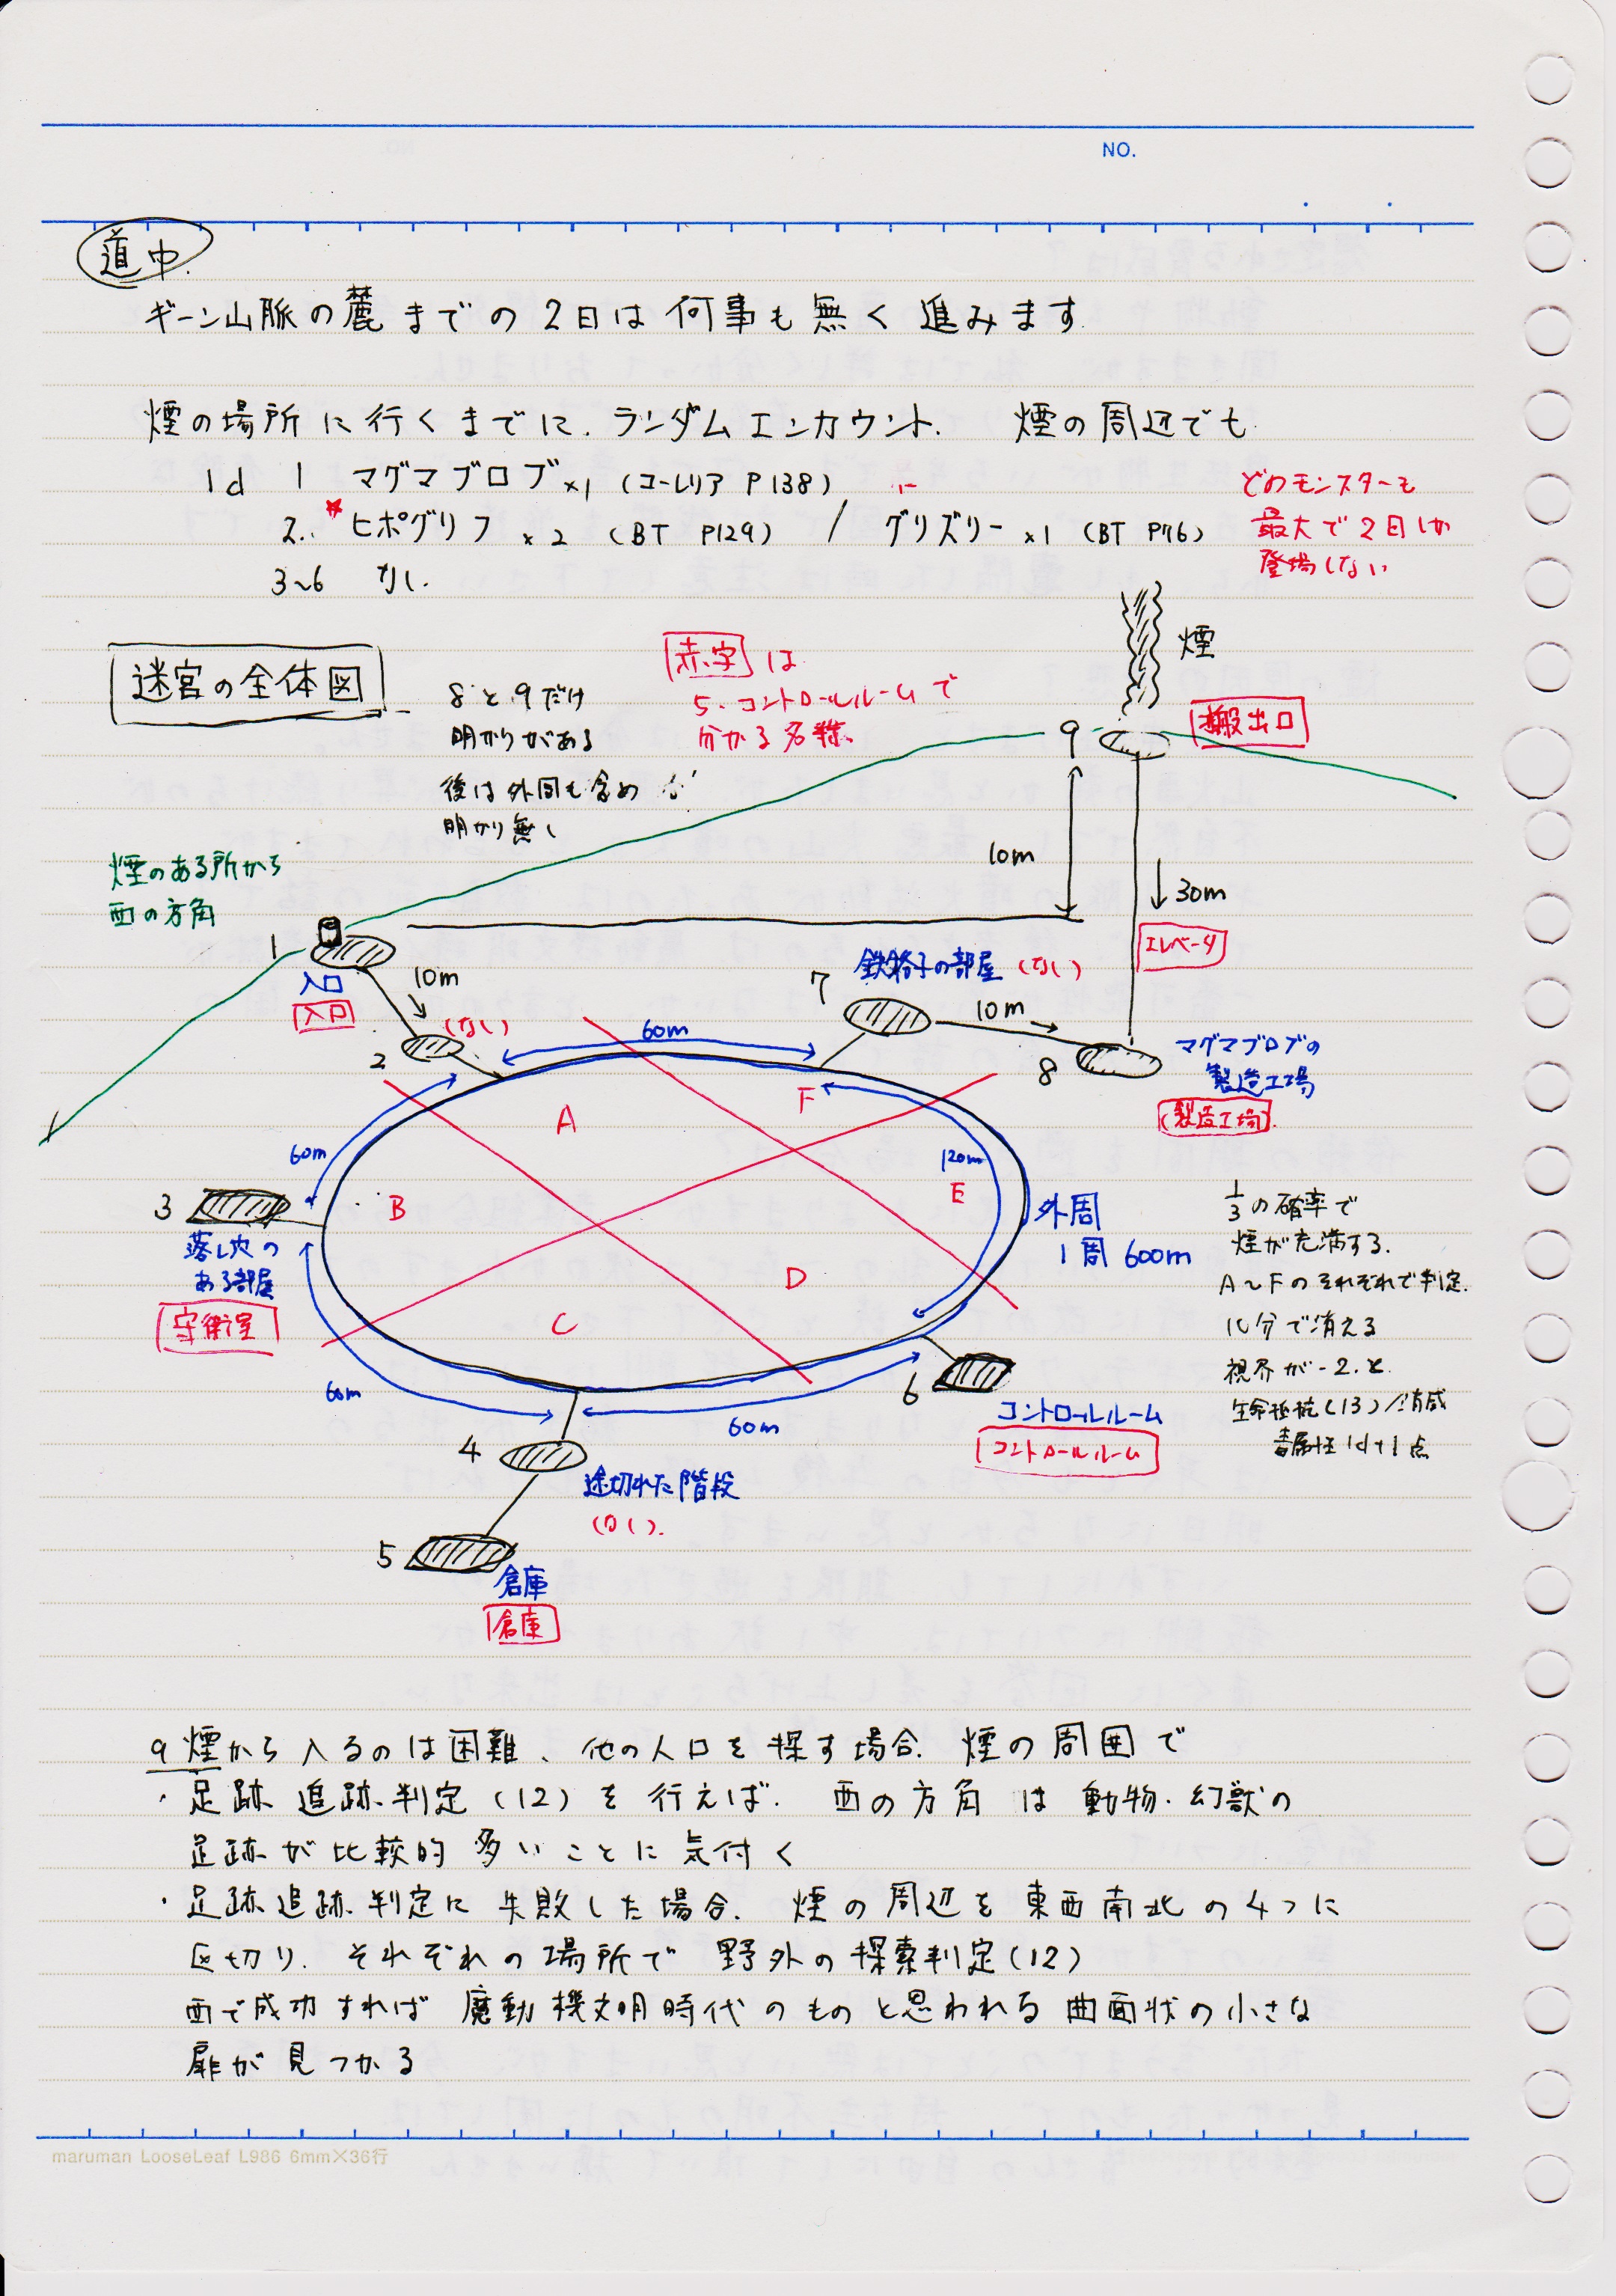 NO.
道中
ギーン山脈の麓までの2日は何事も無く進みます
煙の場所に行くまでに、ランダムエンカウント. 煙の周辺でも
1d 1 マグマブロブ×1 (コーレリア P138)
2. ★ヒポグリフ×2 (BT P129) / グリズリー×1 (BT P76)
3~6 なし.
どのモンスターも
最大で2日しか
登場しない
迷宮の全体図
8と9だけ
明かりがある
後は外周も含め
明かり無し
赤字は
5.コントロールルームで
分かる名称、
煙
9
搬出口
10m
↓30m
エレベータ
煙のある所から
西の方角
1
入口
入口
10m
2
(なし)
60m
7
鉄格子の部屋 (なし)
10m
8
マグマブロブの
製造工場
(製造工場)
A
F
B
E
C
D
60m
120m
3
落し穴の
ある部屋
守衛室
外周
1周 600m
1/3の確率で
煙が充満する.
A~Fのそれぞれで判定.
10分で消える
視界が-2.と
生命抵抗(13)/消滅
毒属性1d+1点
60m
60m
6
コントロールルーム
コントロールルーム
4
途切れた階段
(なし).
5
倉庫
倉庫
9煙から入るのは困難、他の入口を探す場合. 煙の周囲で
・足跡追跡判定(12)を行えば. 西の方角は動物・幻獣の
足跡が比較的多いことに気付く
・足跡追跡判定に失敗した場合. 煙の周辺を東西南北の4つに
区切り. それぞれの場所で野外の探索判定(12)
西で成功すれば魔動機文明時代のものと思われる曲面状の小さな
扉が見つかる
maruman LooseLeaf L986 6mm×36行